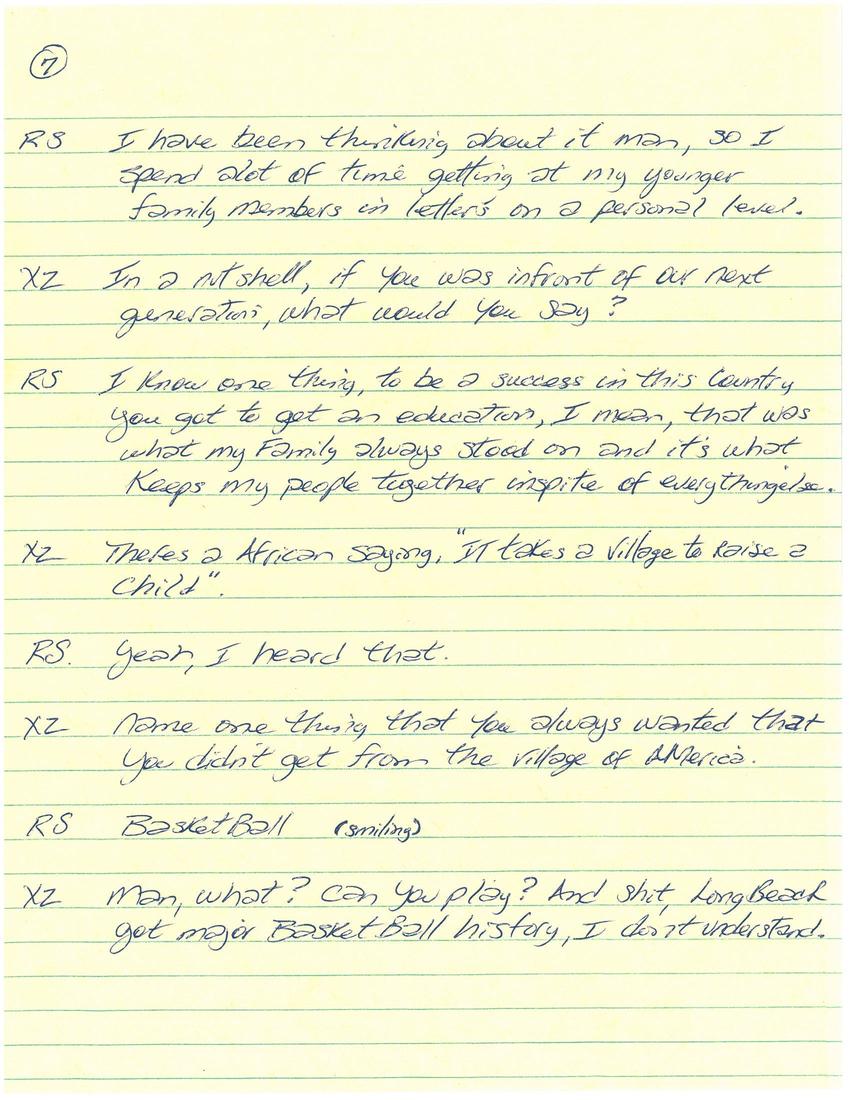 7
RS I have been thinking about it man, so I
spend alot of time getting at my younger
family members in letter's on a personal level.
XZ In a nutshell, if you was infront of our next
generation, what would you say?
RS I know one thing, to be a success in this Country
you got to get an education, I mean, that was
what my Family always stood on and it's what
Keeps my people together inspite of everythingelse.
XZ Theres a African saying, "IT takes a Village to Raise a
Child".
RS. Yeah, I heard that.
XZ Name one thing that you always wanted that
you didn't get from the village of AMerica.
RS BasketBall (smiling)
XZ Man, what? Can you play? And shit, Long Beach
got major BasketBall history, I don't understand.